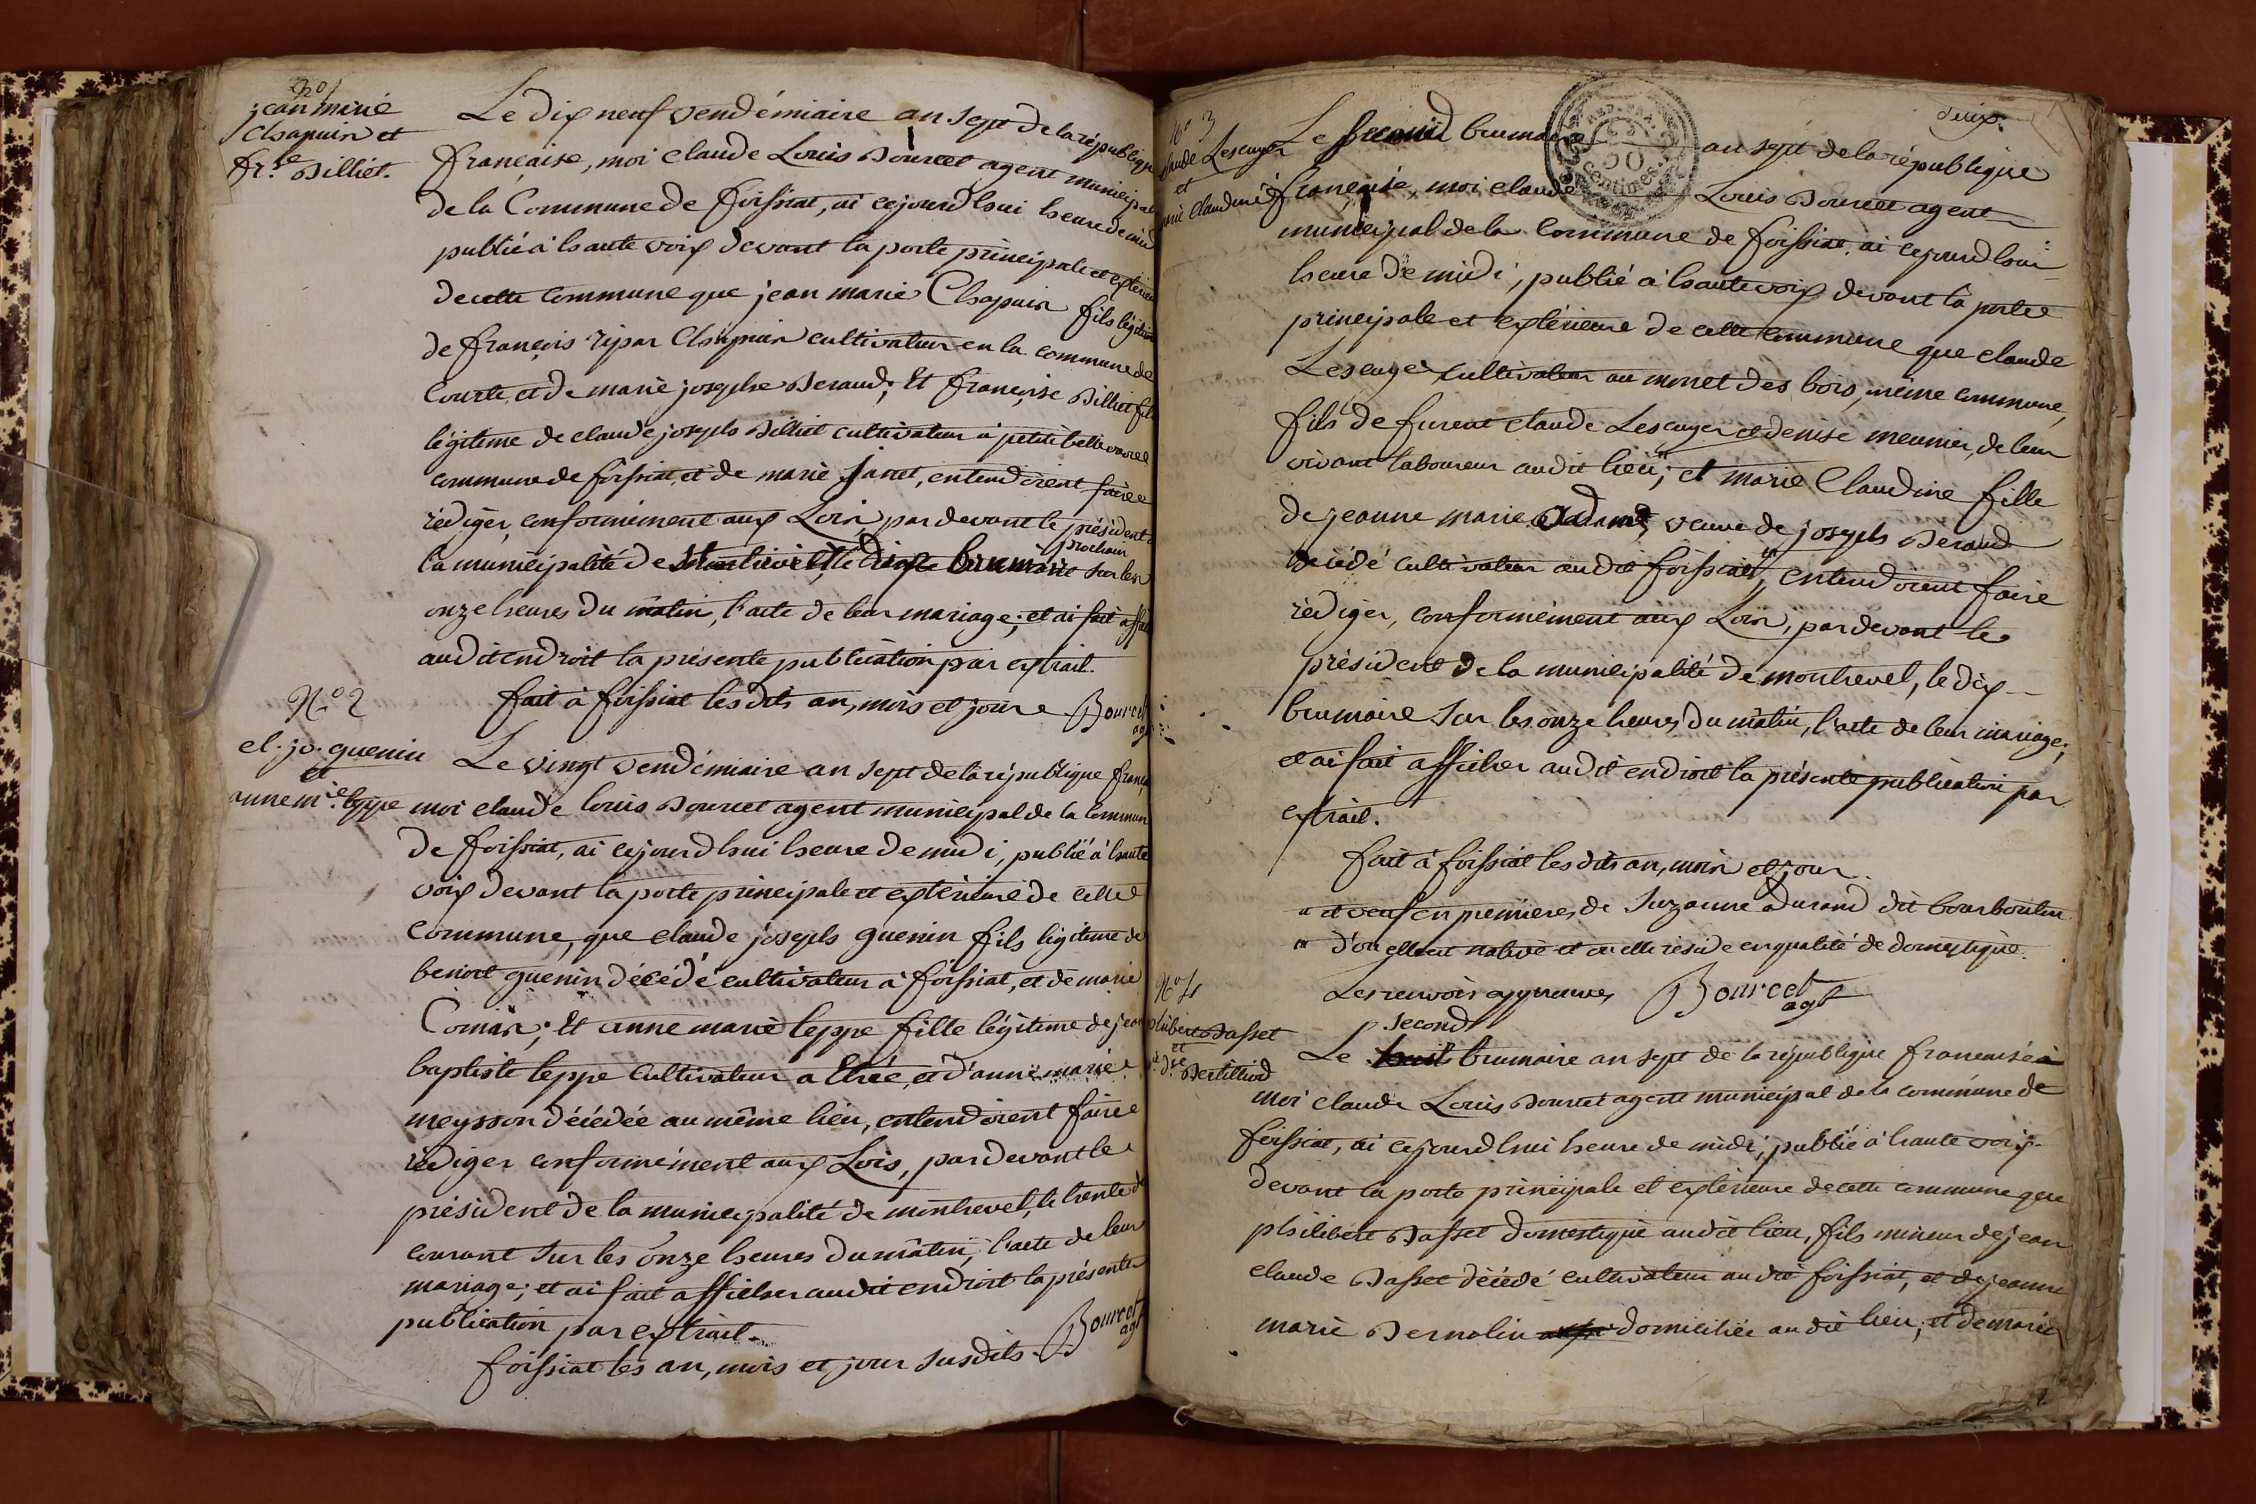 No 1
jean marie
Chapuis et
fr.se Billiet.
Le dix neuf vendémiaire an sept de la république
française, moi claude Louis Bourcet agent municipal
de la Commune de foissiat, ai cejourd'hui heure de midi
publié à haute voix devant la porte principale et extérieure
de cette commune que jean marie Chapuis fils légitime
de françois ripar Chapuis cultivateur en la commune de
Courte, et de marie josephe Beraud; Et françoise Billiet fille
légitime de claude joseph Billiet cultivateur à petite bellevavre
commune de foissiat, et de marie Janet, entendoient faire
rédiger, conformément aux Loix, par devant le président de
la municipalité de Montrevel, le dix brumaire prochain sur les
onze heures du matin, l'acte de leur mariage; et ai fait afficher
audit endroit la présente publication par extrait.
fait à foissiat les dits an, mois et jour Bourcet
agt
No 2
cl. jo. guenin
et
anne m.ie leppe
Le vingt vendémiaire an sept de la république française
moi claude louis Bourcet agent municipal de la Commune
de foissiat, ai cejourd'hui heure de midi, publié à haute
voix devant la porte principale et extérieure de cette
commune, que claude joseph guenin fils légitime de
benoit guenin décédé cultivateur à foissiat, et de marie
Comas; Et anne marie leppe fille légitime de jean
baptiste leppe cultivateur a Etrée, et d'anne marie
meysson décédée au même lieu, entendoient faire
rédiger conformément aux Lois, par devant le
président de la municipalité de montrevel, le trente du
courant sur les onze heures du matin, l'acte de leur
mariage; et ai fait afficher audit endroit la présente
publication par extrait.
foissiat les an, mois et jour susdits. Bourcet
agt
deux.
No 3
claude Lescuyer
et
marie claudine
Le second brumaire an sept de la république
française, moi claude Louis Bourcet agent
municipal de la Commune de foissiat, ai cejourd'hui
heure de midi, publié à haute voix devant la porte
principale et extérieure de cette commune que claude
Lescuyer cultivateur au monet des bois, même commune,
fils de furent claude Lescuyer et denise meunier, de leur
vivant laboureur audit lieu "; et marie Claudine fille
de jeanne marie Adam, veuve de joseph Beraud
décédé cultivateur audit foissiat "', entendoient faire
rédiger, conformément aux Loix, par devant le
président de la municipalité de montrevel, le dix
brumaire sur les onze heures du matin, l'acte de leur mariage;
et ai fait afficher audit endroit la présente publication par
extrait.
fait à foissiat les dits an, mois et jour.
" et veuf en premières de Suzanne Durand dit bourboulin
"' d'ou elle est native et ou elle réside en qualité de domestique.
Les renvois approuvés Bourcet
agt
No 4
philibert Basset
et
Bertilliod
Le second brumaire an sept de la république française
moi claude Louis Bourcet agent municipal de la commune de
foissiat, ai cejourd'hui heure de midi, publié à haute voix
devant la porte principale et extérieure de cette commune que
philibert Basset domestique audit lieu, fils mineur de jean
claude Basset décédé cultivateur audit foissiat, et de jeanne
marie Bernolin domiciliée audit lieu; et de marie
50
Centimes.